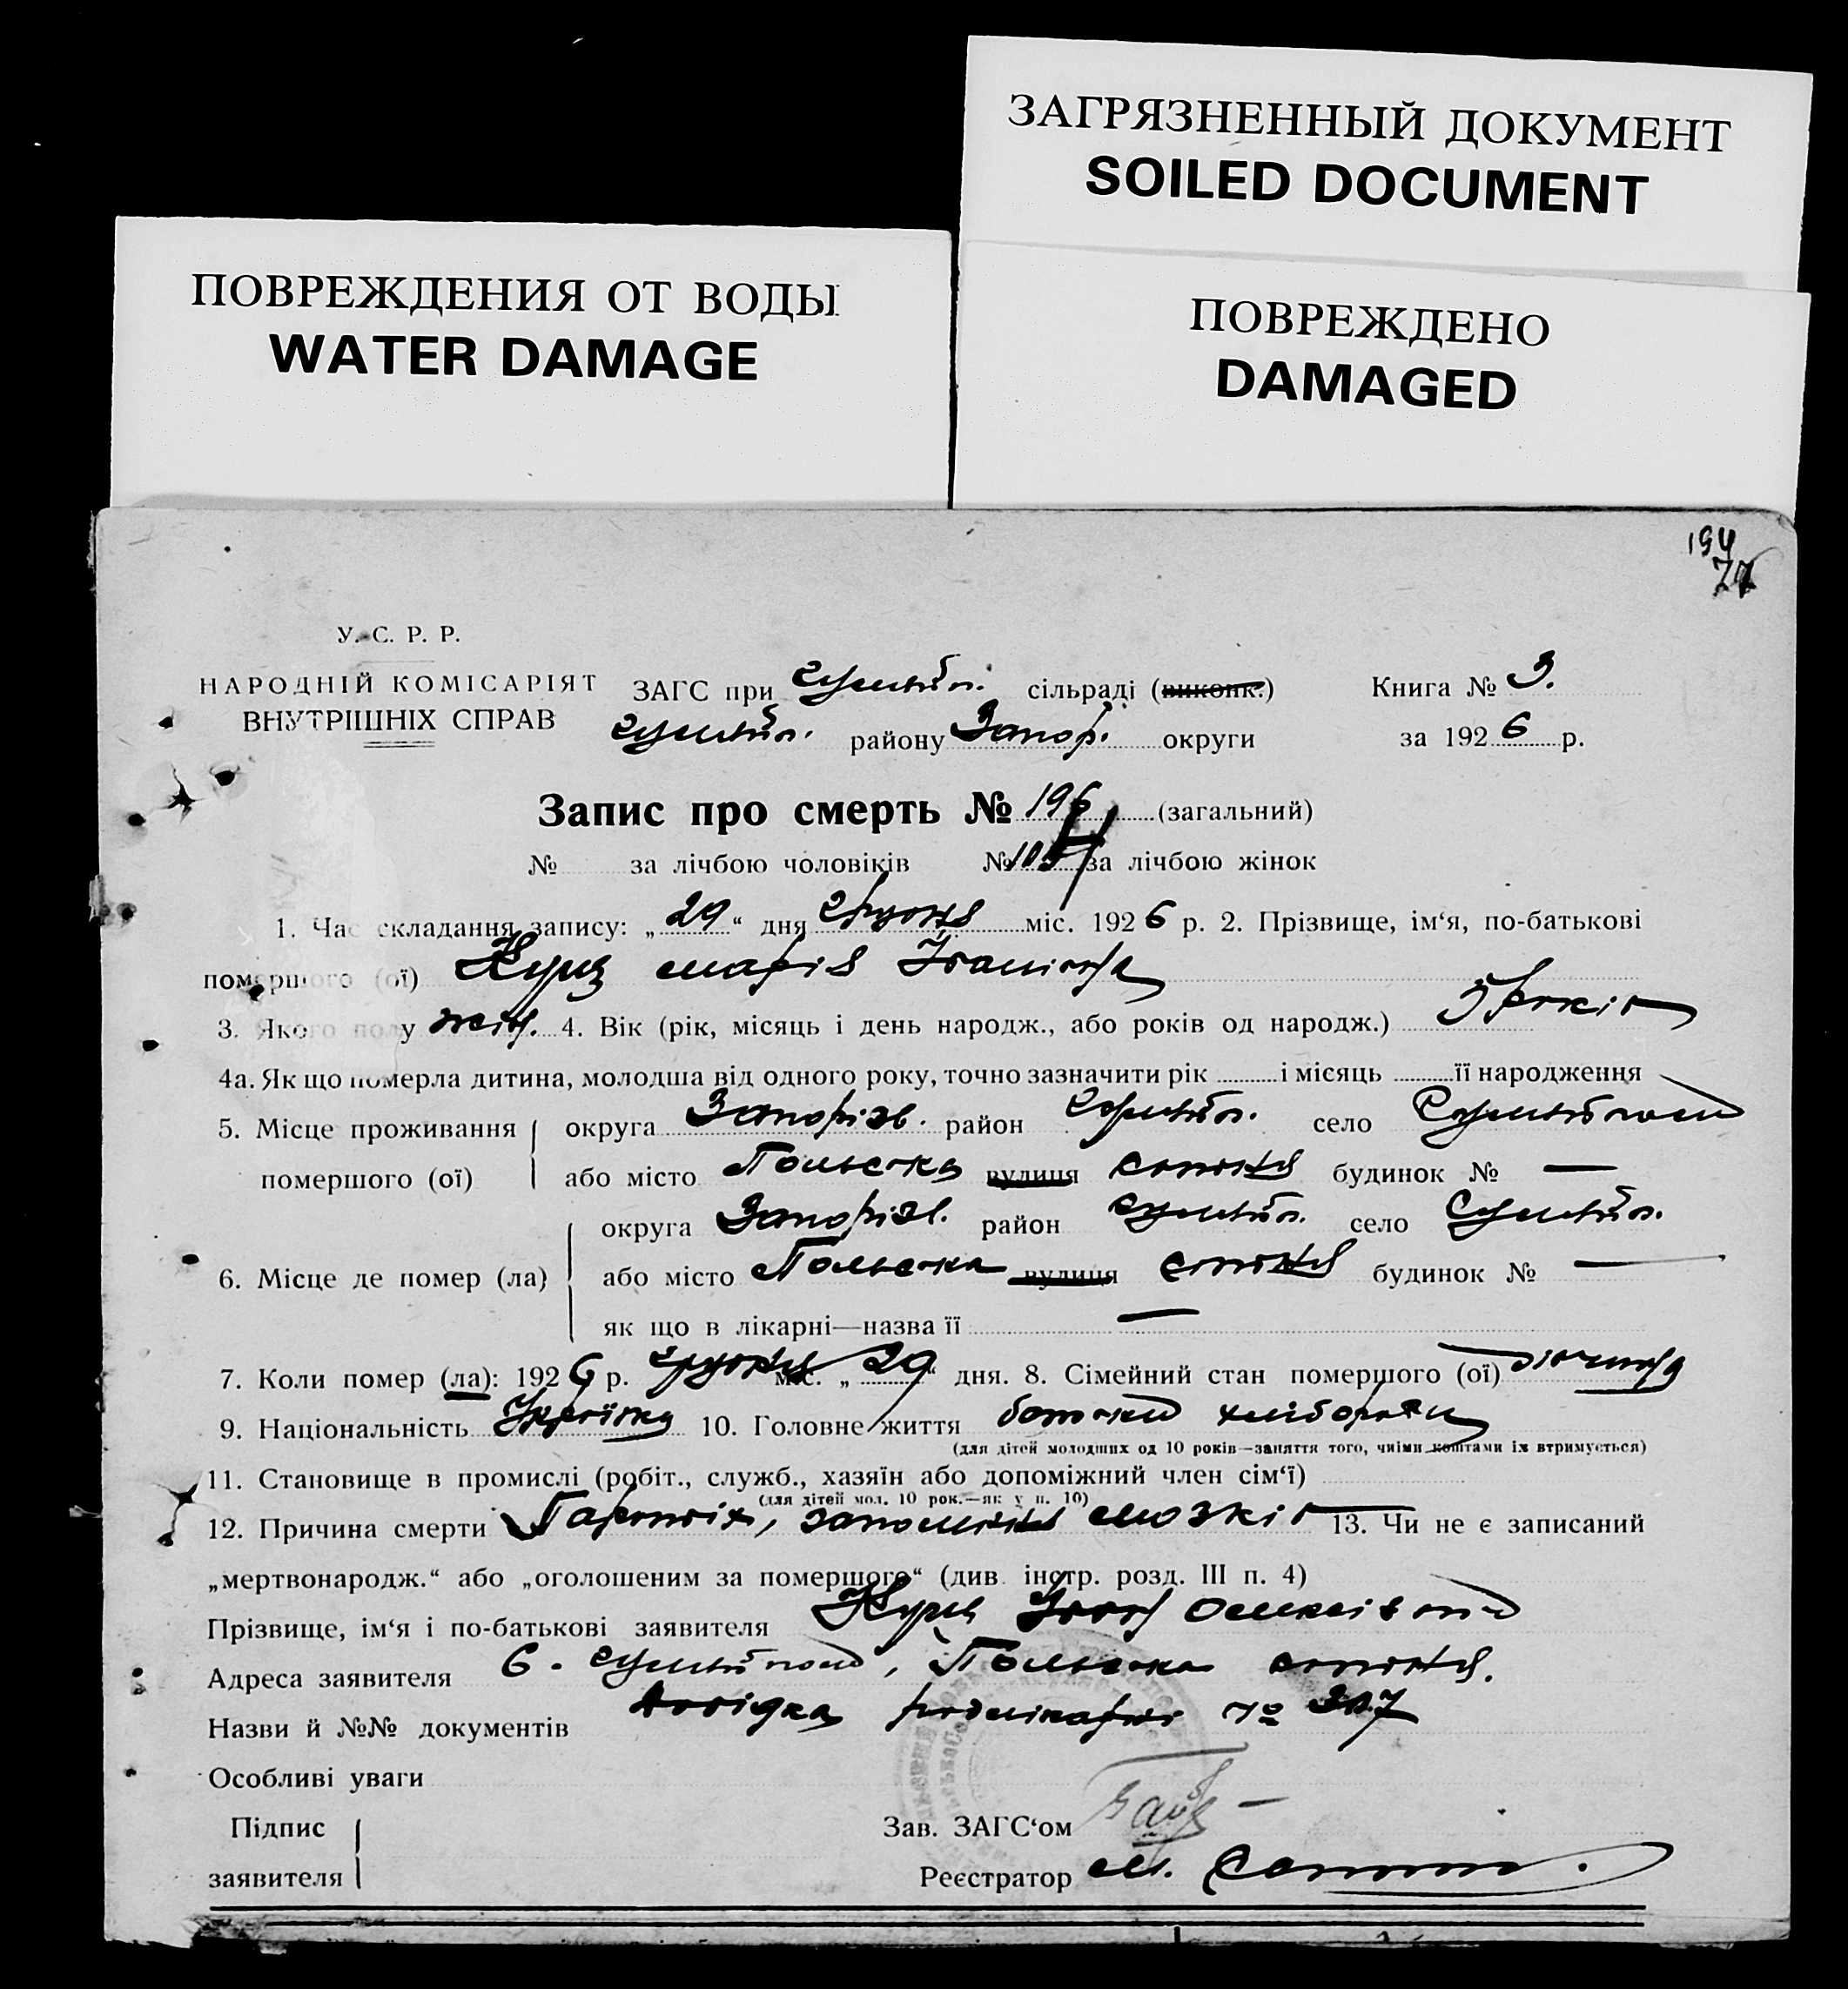 ЗАГРЯЗНЕННЫЙ ДОКУМЕНТ
SOILED DOCUMENT
ПОВРЕЖДЕНИЯ ОТ ВОДЫ
WATER DAMAGE
ПОВРЕЖДЕНО
DAMAGED
194
У. С. Р. Р.
НАРОДНІЙ КОМІСАРІЯТ
ВНУТРІШНІХ СПРАВ
ЗАГС при сільраді (виконк.) Книга № 3.
району Запор. округи за 1926 р.
Запис про смерть № 196 (загальний)
№ за лічбою чоловіків № за лічбою жінок
1. Час складання запису: „29“ дня грудня міс. 1926 р. 2. Прізвище, ім‘я, по-батькові
помершого (ої) Марія Іванівна
3. Якого полу жін. 4. Вік (рік, місяць і день народж., або років од народж.) років
4а. Як що померла дитина, молодша від одного року, точно зазначити рік і місяць її народження
5. Місце проживання округа Запоріз. район село
помершого (ої) або місто Польська вулиця сотня будинок № —
6. Місце де помер (ла) округа Запоріз. район село
або місто Польська вулиця сотня будинок № —
як що в лікарні—назва її —
7. Коли помер (ла): 1926 р. грудня міс. „29“ дня. 8. Сімейний стан помершого (ої) дівчина
9. Національність Українка 10. Головне життя батьки хлібороби
(для дітей молодших од 10 років—заняття того, чиїми коштами їх втримується)
11. Становище в промислі (робіт., служб., хазяїн або допоміжний член сім‘ї)
(для дітей мол. 10 рок.—як у п. 10)
12. Причина смерти запалення мозків 13. Чи не є записаний
„мертвонародж.“ або „оголошеним за помершого“ (див. інстр. розд. III п. 4)
Прізвище, ім‘я і по-батькові заявителя Іван Олексієвич
Адреса заявителя с. Польська сотня.
Назви й №№ документів Довідка №
Особливі уваги
Підпис
заявителя
Зав. ЗАГС‘ом
Реєстратор